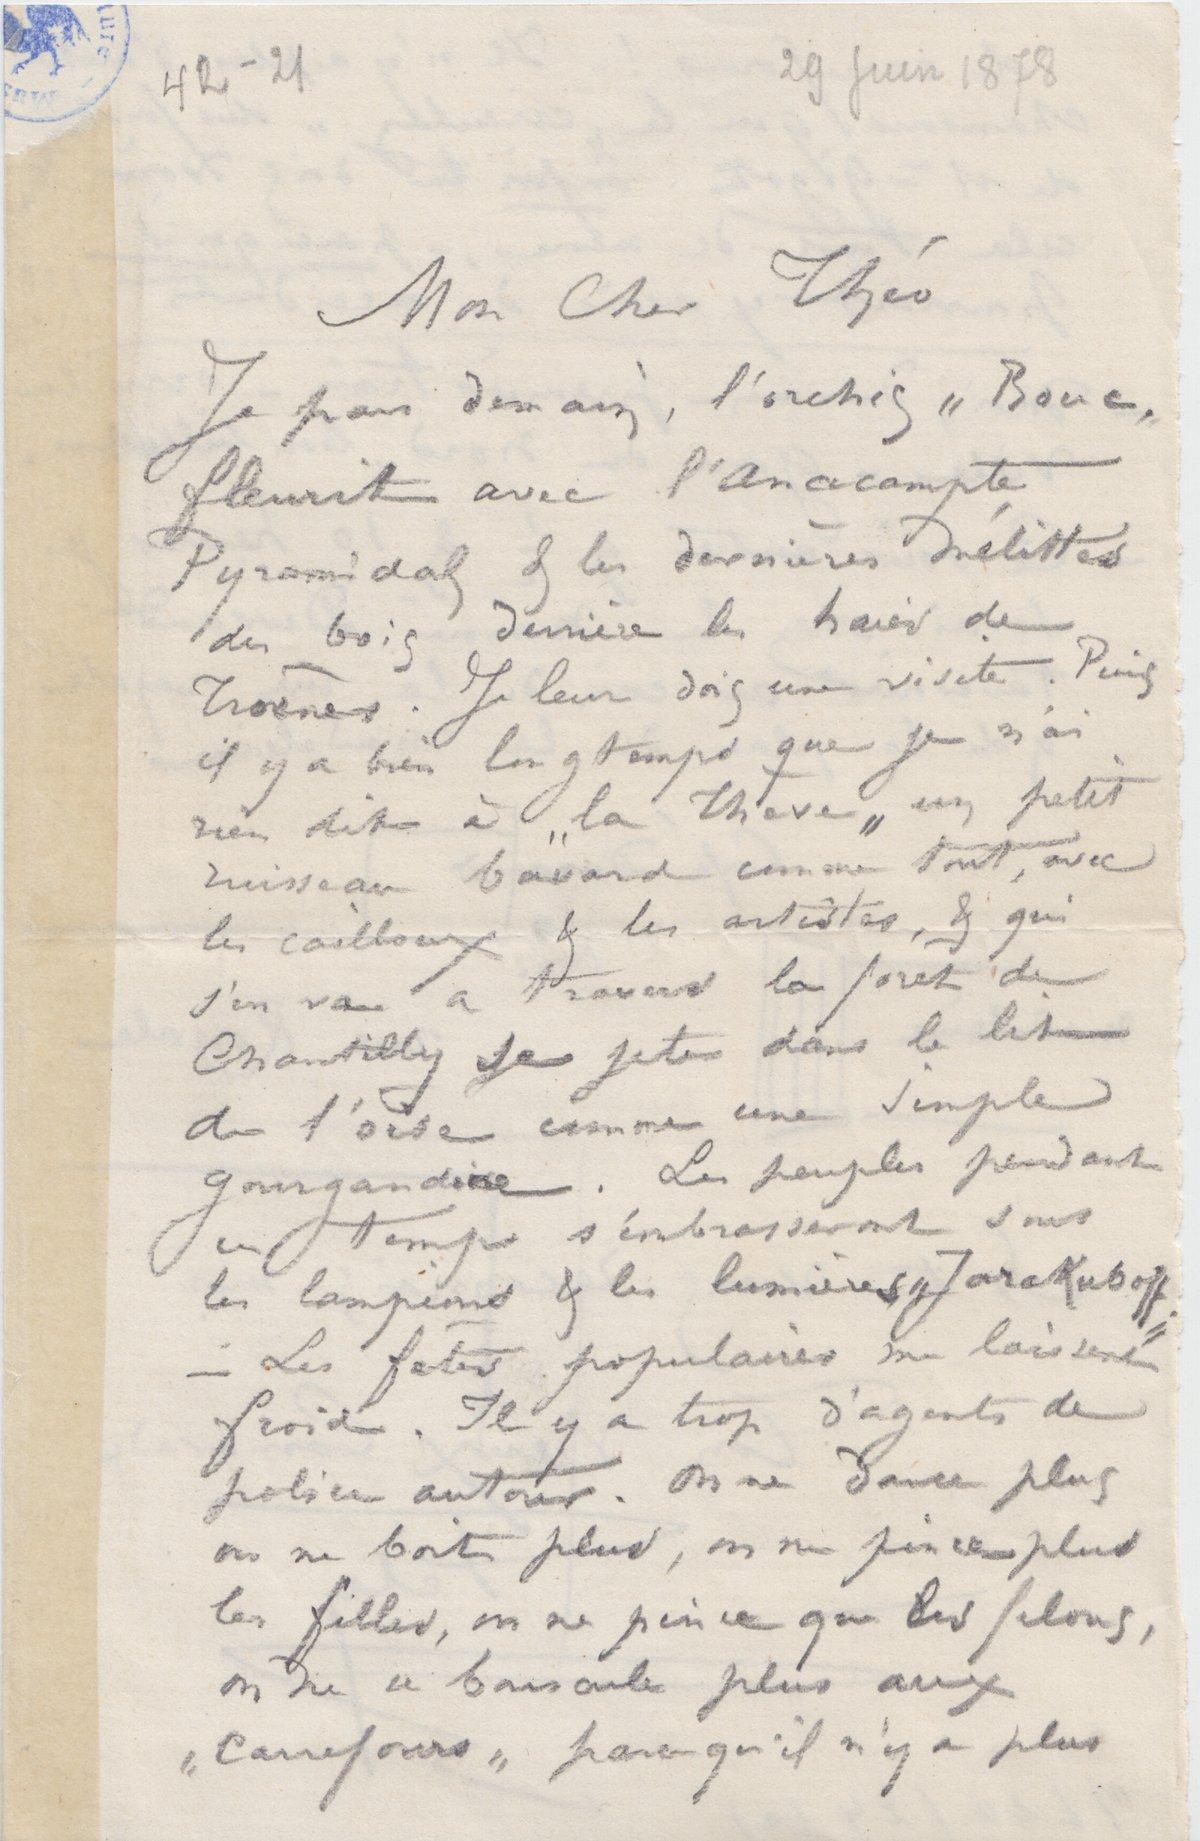 42-21
29 Juin 1878
Mon Cher Théo
Je pars demain, l'orchis „ Bouc „
fleurit avec l'Anacampte
Pyramidal & les dernières Mélittes
des bois derrière les haies de
Troënes. Je leur dois une visite. Puis
il y a bien longtemps que je n'ai
rien dit à „la Thève„ un petit
ruisseau bavard comme tout, avec
les cailloux & les artistes, & qui
s'en va a travers la forêt de
Chantilly se jeter dans le lit
de l'oise comme une simple
gourgandine. Les peuples pendant
ce temps s'embrasseront sous
les lampions & les lumières „Jarakuboff„
— Les fetes populaires me laissent
froid. Il y a trop d'agents de
police autour. On ne danse plus
on ne boit plus, on ne pince plus
les filles, on ne pince que les filous,
on ne se bouscule plus aux
„Carrefours„ parcequ'il n'y a plus